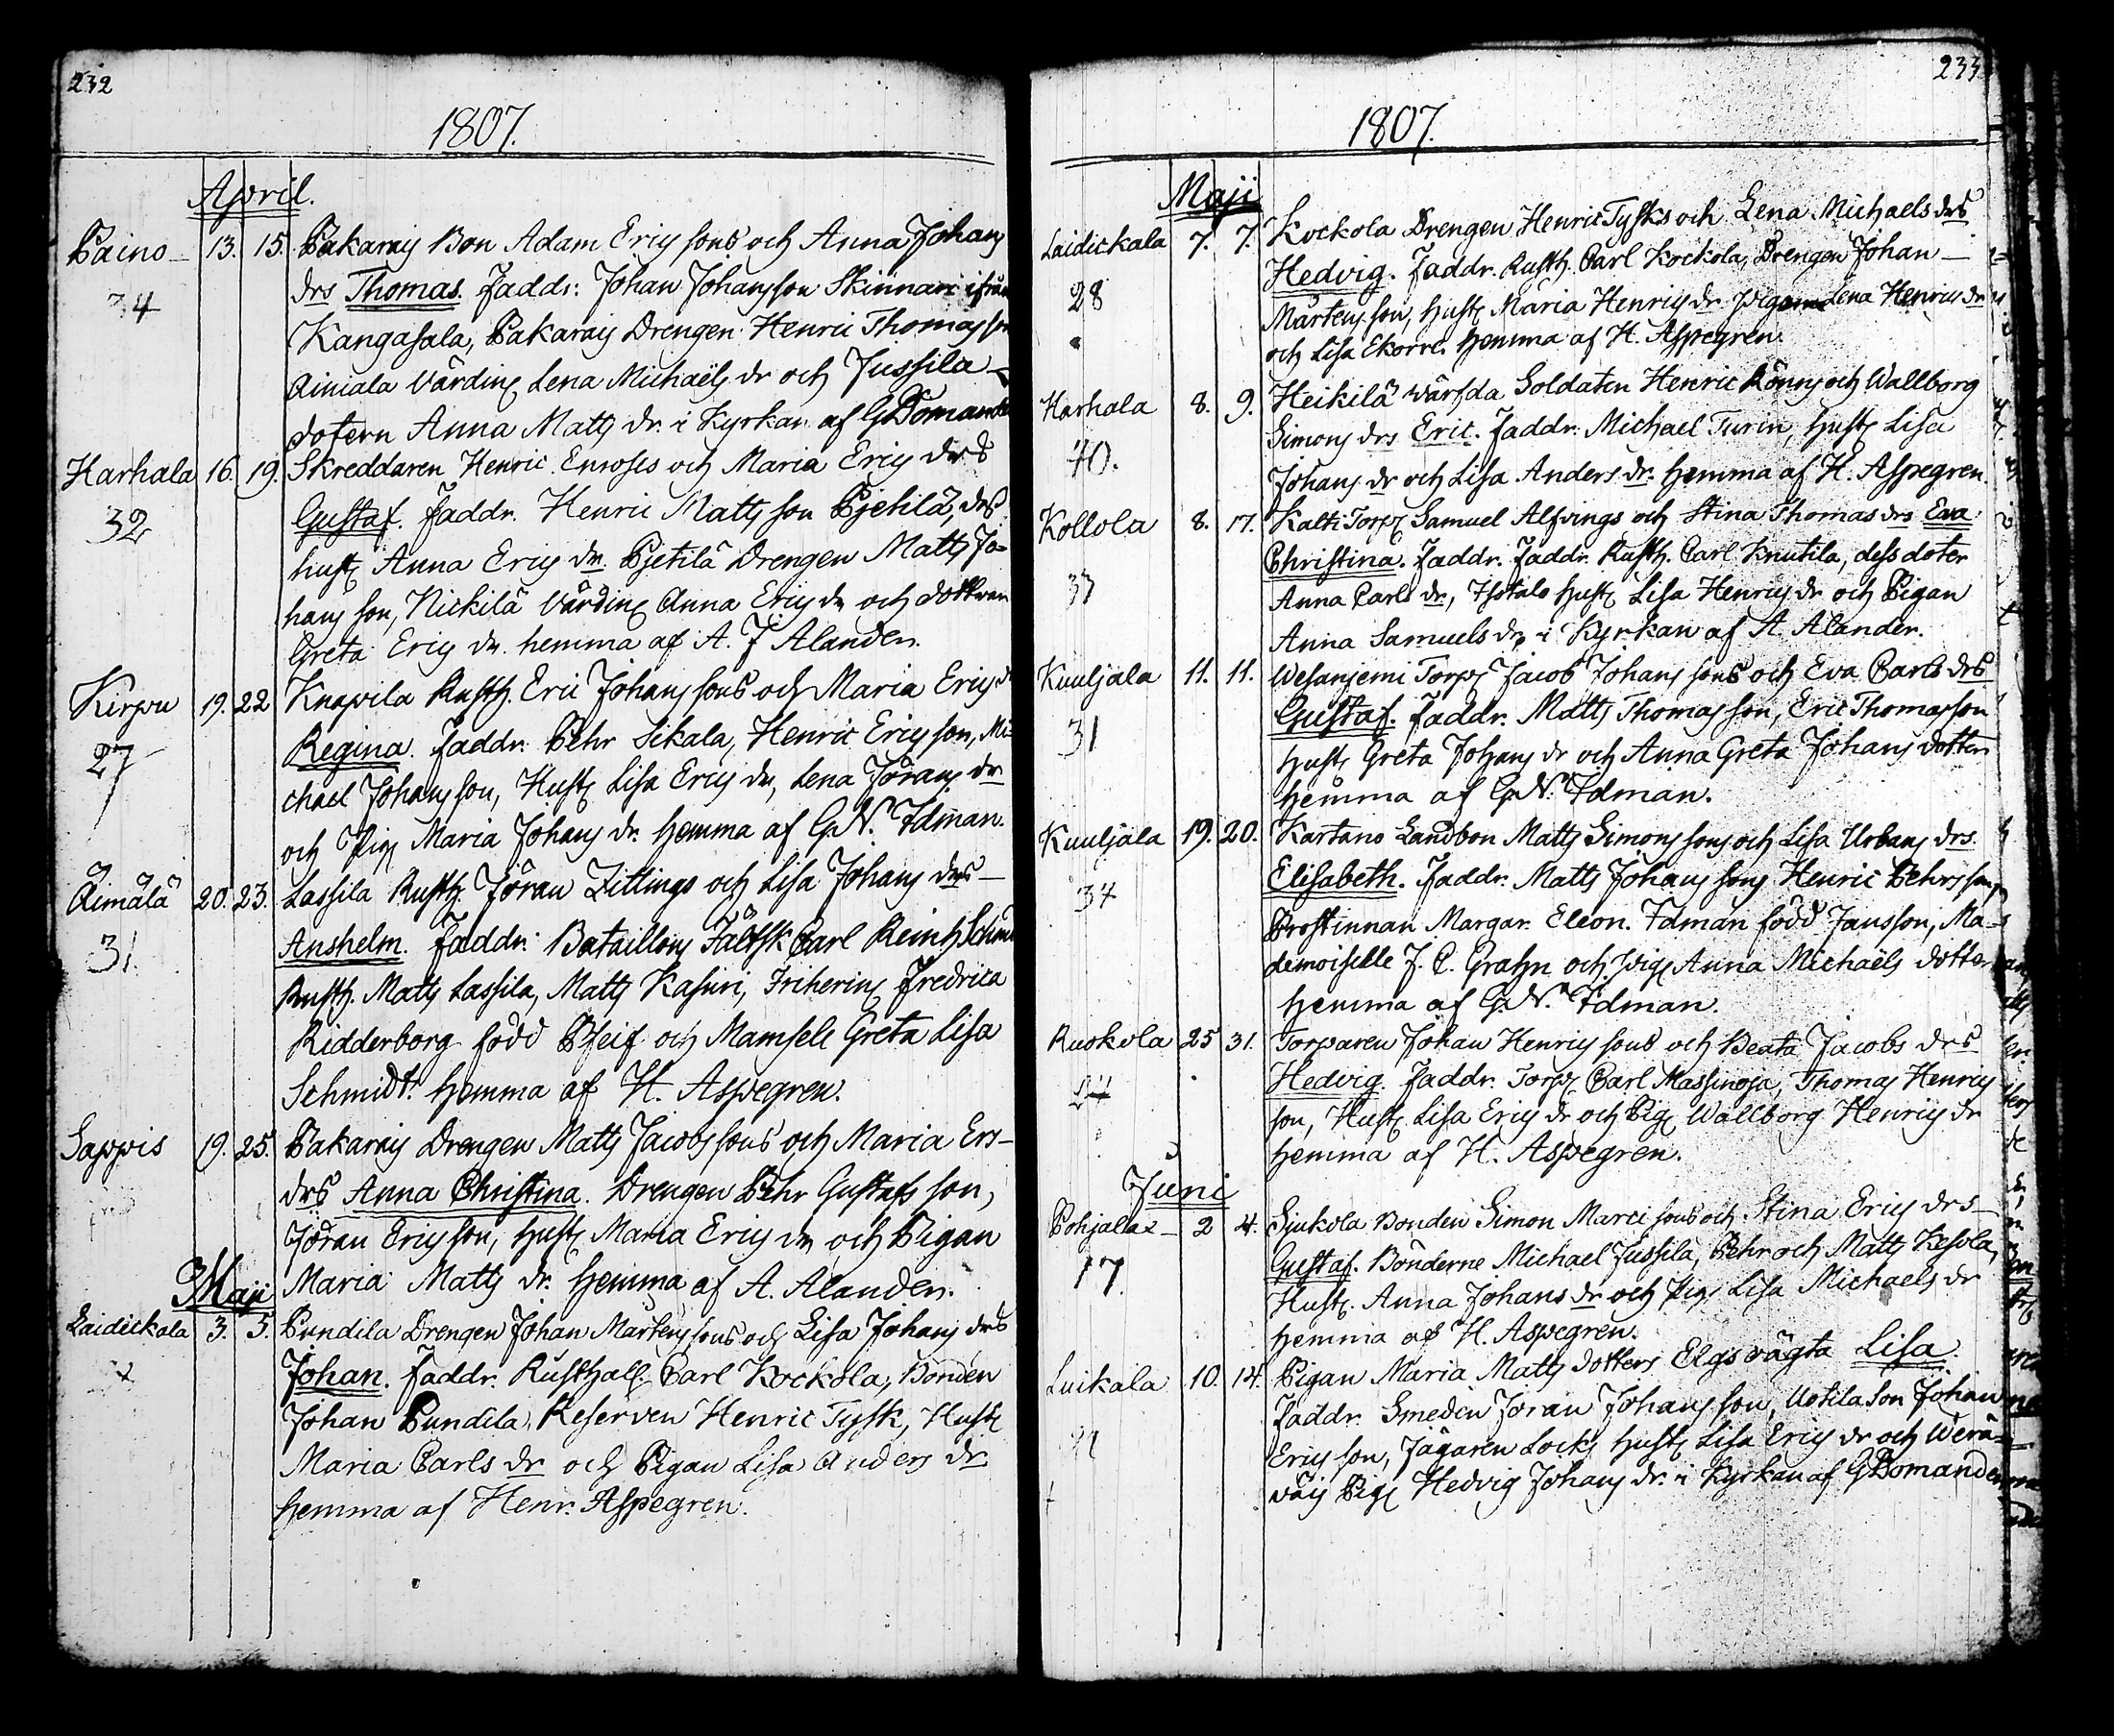 232
1807.
April.
Paino 13. 15. Pakarais Bon Adam Erics sons och Anna Johans
34 drs Thomas. Faddr: Johan Johansson Skinnari ifrån
Kangasala, Pakarais Drengen Henric Thomasson
Ainiala Värdin Lena Michaëls dr och Jussila
dotern Anna Matts dr. i Kyrkan af G Domander
Harhala 16. 19. Skreddaren Henric Enroses och Maria Erics drs
32 Gustaf. Faddr. Henric Matts son Pjetilä, des
hust Anna Erics dr. Pjetilä Drengen Matts Jo-
hans son, Nickilä Värdin Anna Erics dr och dotteren
Greta Erics dr. hemma af A. J Alander.
Kirpu 19. 22 Knapila Rusth. Eric Johans sons och Maria Erics d
27 Regina. Faddr. Pehr Sikala, Henric Erics son, Mi-
chael Johans son, Hust Lisa Erics dr, Lena Jörans dr
och Pig Maria Johans dr. hemma af G.N. Idman.
Aimälä 20. 23. Lassila Rusth. Jöran Zittings och Lisa Johans drs
31. Anshelm. Faddr: Bataillons Fältsk Carl Reinh Schm
Rusth. Matts Lassila, Matts Kasuri, Friherin Fredrica
Ridderborg född Pfeif och Mamsell Greta Lisa
Schmidt. hemma af H. Aspegren.
Sappis 19. 25. Pakarais Drengen Matts Jacobs sons och Maria Ers-
drs Anna Christina. Drengen Pehr Gustafs son,
Jöran Ericsson, hust Maria Erics dr och Pigan
Maria Matts dr. hemma af A. Alander.
Maji
Laidickala 3. 5. Pundila Drengen Johan Mårtens sons och Lisa Johans drs
Johan. Faddr. Rusthall. Carl Kockola, Bonden
Johan Pundila, Reserven Henric Tysk, Hust
Maria Carls dr och Pigan Lisa Anders dr
hemma af Henr. Aspegren.
233
1807.
Maji
Laidickala 7. 7. Kockola Drengen Henric Tysks och Lena Michaels drs
28 Hedvig. Faddr. Rusth. Carl Kockola, Drengen Johan
Mårtens son, hust Maria Henrics dr pigan Lena Henrics dr
och Lisa Ekorre. hemma af H. Aspegren.
Harhala 8. 9. Heikilä värfda Soldaten Henric Rönns och Wallborg
40. Simons drs Eric. Faddr. Michael Turin, hust Lisa
Johans dr och Lisa Anders dr. hemma af H. Aspegren.
Kollola 8. 17. Kalti Torp Samuel Alfvings och Stina Thomas drs Eva
33 Christina. Faddr. Faddr. Rusth. Carl Knutila, dess doter
Anna Carls dr, Isotalo hust Lisa Henrics dr och Pigan
Anna Samuels dr, i Kyrkan af A. Alander.
Kuuljala 11. 11. Wesanjemi Torp Jacob Johans sons och Eva Carls drs
31 Gustaf. Faddr. Matts Thomas son, Eric Thomasson
hust Greta Johans dr och Anna Greta Johans dotter
hemma af G.N. Idman.
Kuuljala 19. 20. Kartano Landbon Matts Simons sons och Lisa Urbans drs.
34 Elisabeth. Faddr. Matts Johans son, Henric Pehrsson
Prostinnan Margar. Eleon. Idman född Jansson, Ma-
demoiselle J. C. Grahn och pig Anna Michaëls dotter
hemma af G.N. Idman.
Ruokola 25 31. Torparen Johan Henrics sons och Beata Jacobs drs
Hedvig. Faddr. Torp Carl Massinoja, Thomas Henrics
son, Hust Lisa Erics dr och Pig Wallborg Henrics dr
hemma af H. Aspegren.
Juni
Pohjala 2 4. Sjukola Bonden Simon Marci sons och Stina Erics drs
17. Gustaf. Bönderne Michael Jussila, Pehr och Matts Kesola,
Hust. Anna Johans dr och Pig Lisa Michaels dr
hemma af H. Aspegren.
Luikala 10. 14. Pigan Maria Matts dotters Elgsvägta Lisa
Faddr. Smeden Jöran Johans son, Uotila Son Johan
Erics son, Jägaren Locks hust Lisa Erics dr och Werä-
väis Pig Hedvig Johans dr. i Kyrkan af G Domander